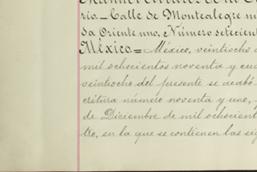 rio._Calle de Montealegre nú
da Oriente uno, Número setecien
México._México, veintiocho d
mil ochocientos noventa y cua
veintiocho del presente se acabó
critura número noventa y uno,
de Diciembre de mil ochocient
tro, en la que se contienen las sig